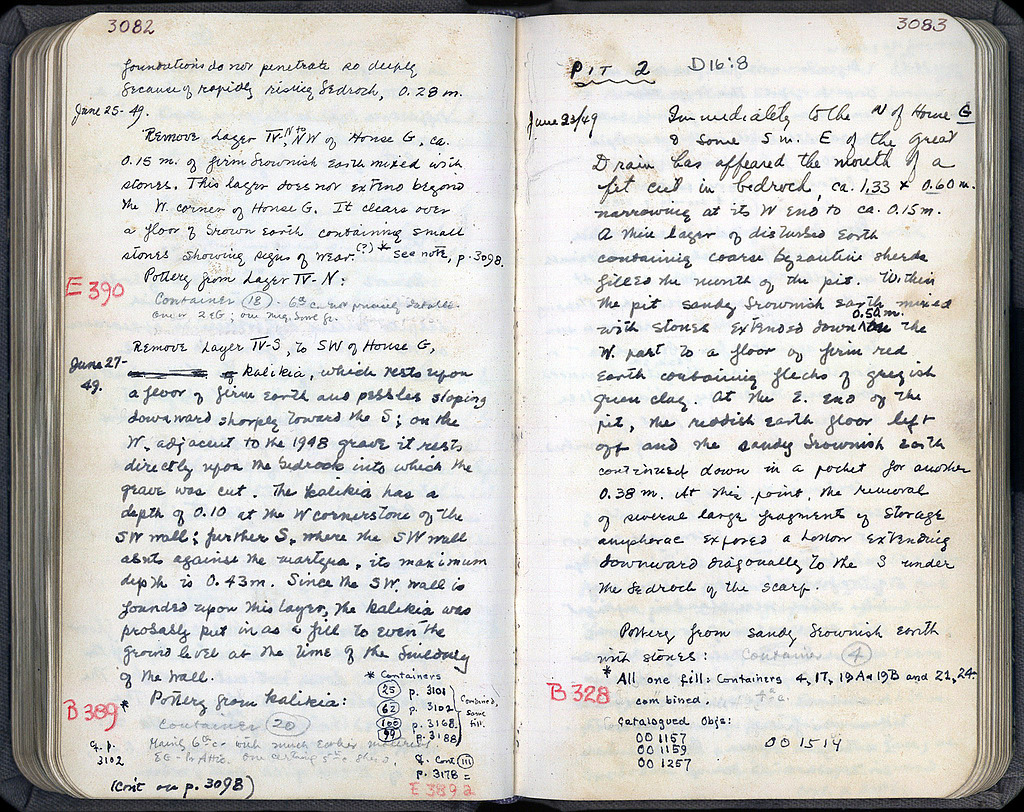 3082
foundations do not penetrate so deeply
because of rapidly rising bedrock, 0.28 m.
June 25-49.
Remove Layer IV-N, to NW of House G, ca.
0.15 m. of firm brownish earth mixed with
stones. This layer does not extend beyond
the W. corner of House G. It clears over
a floor of brown earth containing small
stones showing signs of wear.(?) * See note, p. 3098.
Pottery from Layer IV-N:
E 390
Container (18) - 6th c. not precisely datable
one or 2 EG; one
Remove Layer IV-3, to SW of House G,
June 27-
49.
of kalikia, which rests upon
a floor of firm earth and pebbles sloping
downward sharply toward the S; on the
W. adjacent to the 1948 grave it rests
directly upon the bedrock into which the
grave was cut. The kalikia has a
depth of 0.10 at the W cornerstone of the
SW wall; further S, where the SW wall
abuts against the martyra, its maximum
depth is 0.43 m. Since the SW. wall is
founded upon this layer, the kalikia was
probably put in as a fill to even the
ground level at the time of the building
of the wall.
B 389
* Pottery from kalikia:
Container (20)
Mainly 6th c. with much earlier material.
EG - to Attic. One certain 5th c. sherd.
cf. p.
3102
(Con't on p. 3098)
* Containers
(25) p. 3101
(62) p. 3102
(100) p. 3168
(99) p. 3188
Combined,
same
fill.
cf. Cont (111)
p. 3178 =
E 389 a
3083
PIT 2 D16:8
June 23/49
Immediately to the N of House G
& some 5 m. E of the Great
Drain has appeared the mouth of a
pit cut in bedrock ca. 1.33 x 0.60 m.
narrowing at its W end to ca. 0.15 m.
A thin layer of disturbed earth
containing coarse byzantine sherds
filled the mouth of the pit. Within
the pit sandy brownish earth mixed
with stones extended down 0.50 m. in the
W. part to a floor of firm red
earth containing flecks of greyish
green clay. At the E. end of the
pit, the reddish earth floor left
off and the sandy brownish earth
continued down in a pocket for another
0.38 m. At this point, the removal
of several large fragments of storage
amphorae exposed a hollow extending
downward diagonally to the S under
the bedrock of the scarp.
Pottery from sandy brownish earth
with stones: Container (4)
B 328
* All one fill: Containers 4, 17, 19A-19B and 21, 24
combined. 4th c.
Catalogued Objs:
OO 1157
OO 1159
OO 1257
OO 1514